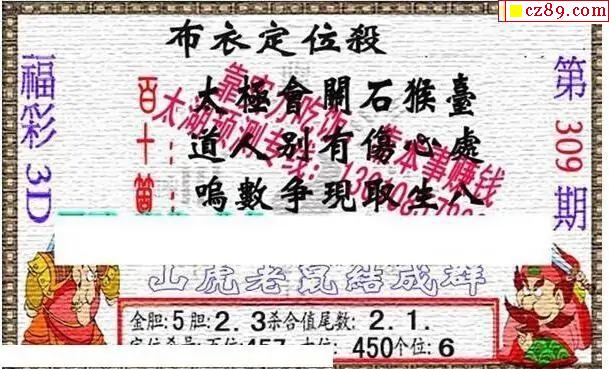 cz89.com
布衣定位殺
福彩3D
第309期
百：太極會開石猴臺
十：道人别有傷心處
嗚數爭現取生八
靠实力吃饭 靠本事赚钱
太湖预测专线：
山虎老鼠結成群
金胆:5胆:2.3杀合值尾数:2.1.
450个位:6